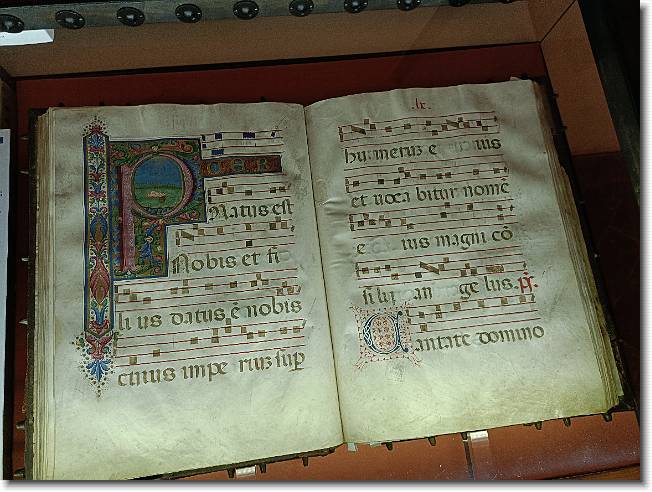 PUER
natus est
nobis et fi
li us datus, ē nobis
cuius impe riuz sup̄
lx.
humeruz e ius
et voca bitur nomē
e ius magni cō
si lij an ge lus. p̄s.
Cantate domino